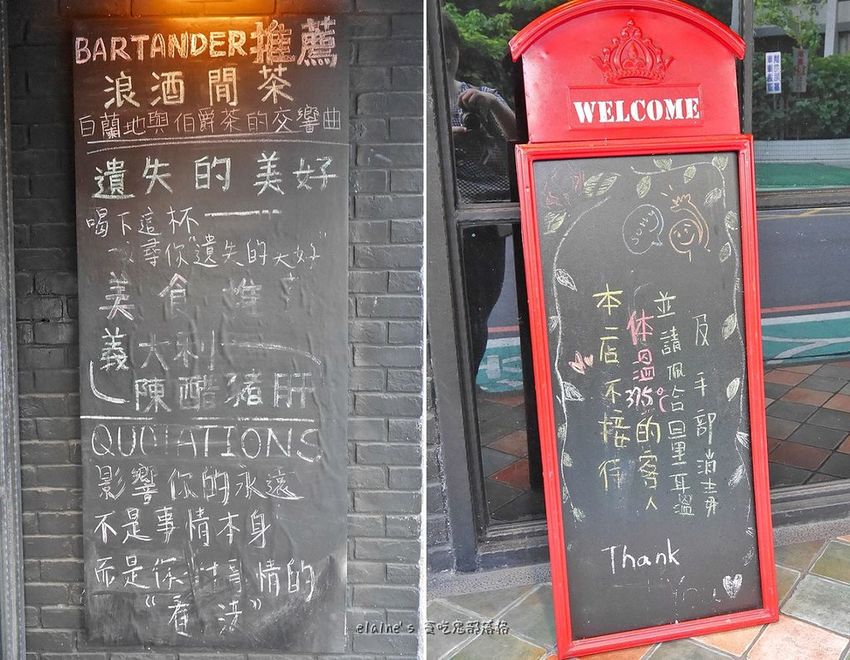 BARTANDER推薦
浪酒閒茶
白蘭地與伯爵茶的交響曲
遺失的美好
喝下這杯
尋你"遺失的大好"
美食推
義大利
陳醋豬肝
QUOTATIONS
影響你的永遠
不是事情本身
而是你 事情的
"看法"
WELCOME
Sorry
本店不接待
体溫37.5°C的客人
並請配合量耳溫
及手部消毒
Thank
elaine's 貪吃鬼部落格